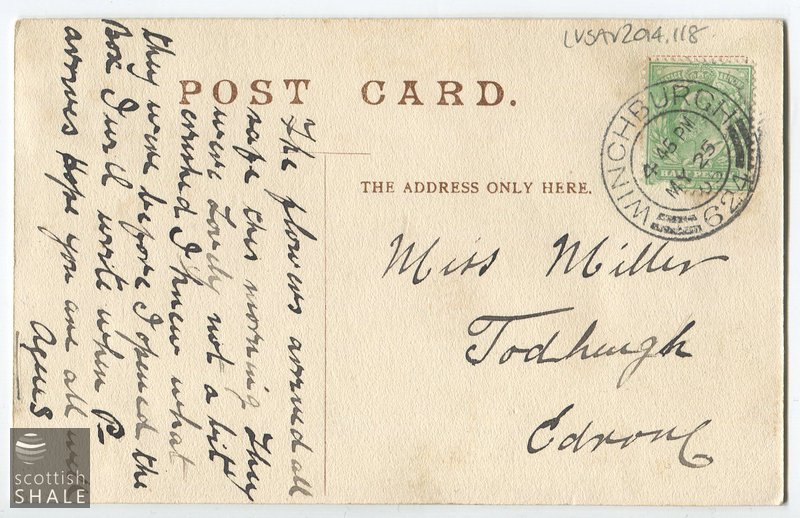 LVSAV2014.118
POST CARD.
THE ADDRESS ONLY HERE.
WINCHBURGH
4 45 PM
25
624
HALF PENNY
Miss Miller
Todheugh
Edrom
The flowers arrived all
safe this morning They
were Lovely not a bit
crushed I knew what
they were before I opened the
Box I will write when P—
arrives hope you are all well
Agnes
scottish
SHALE